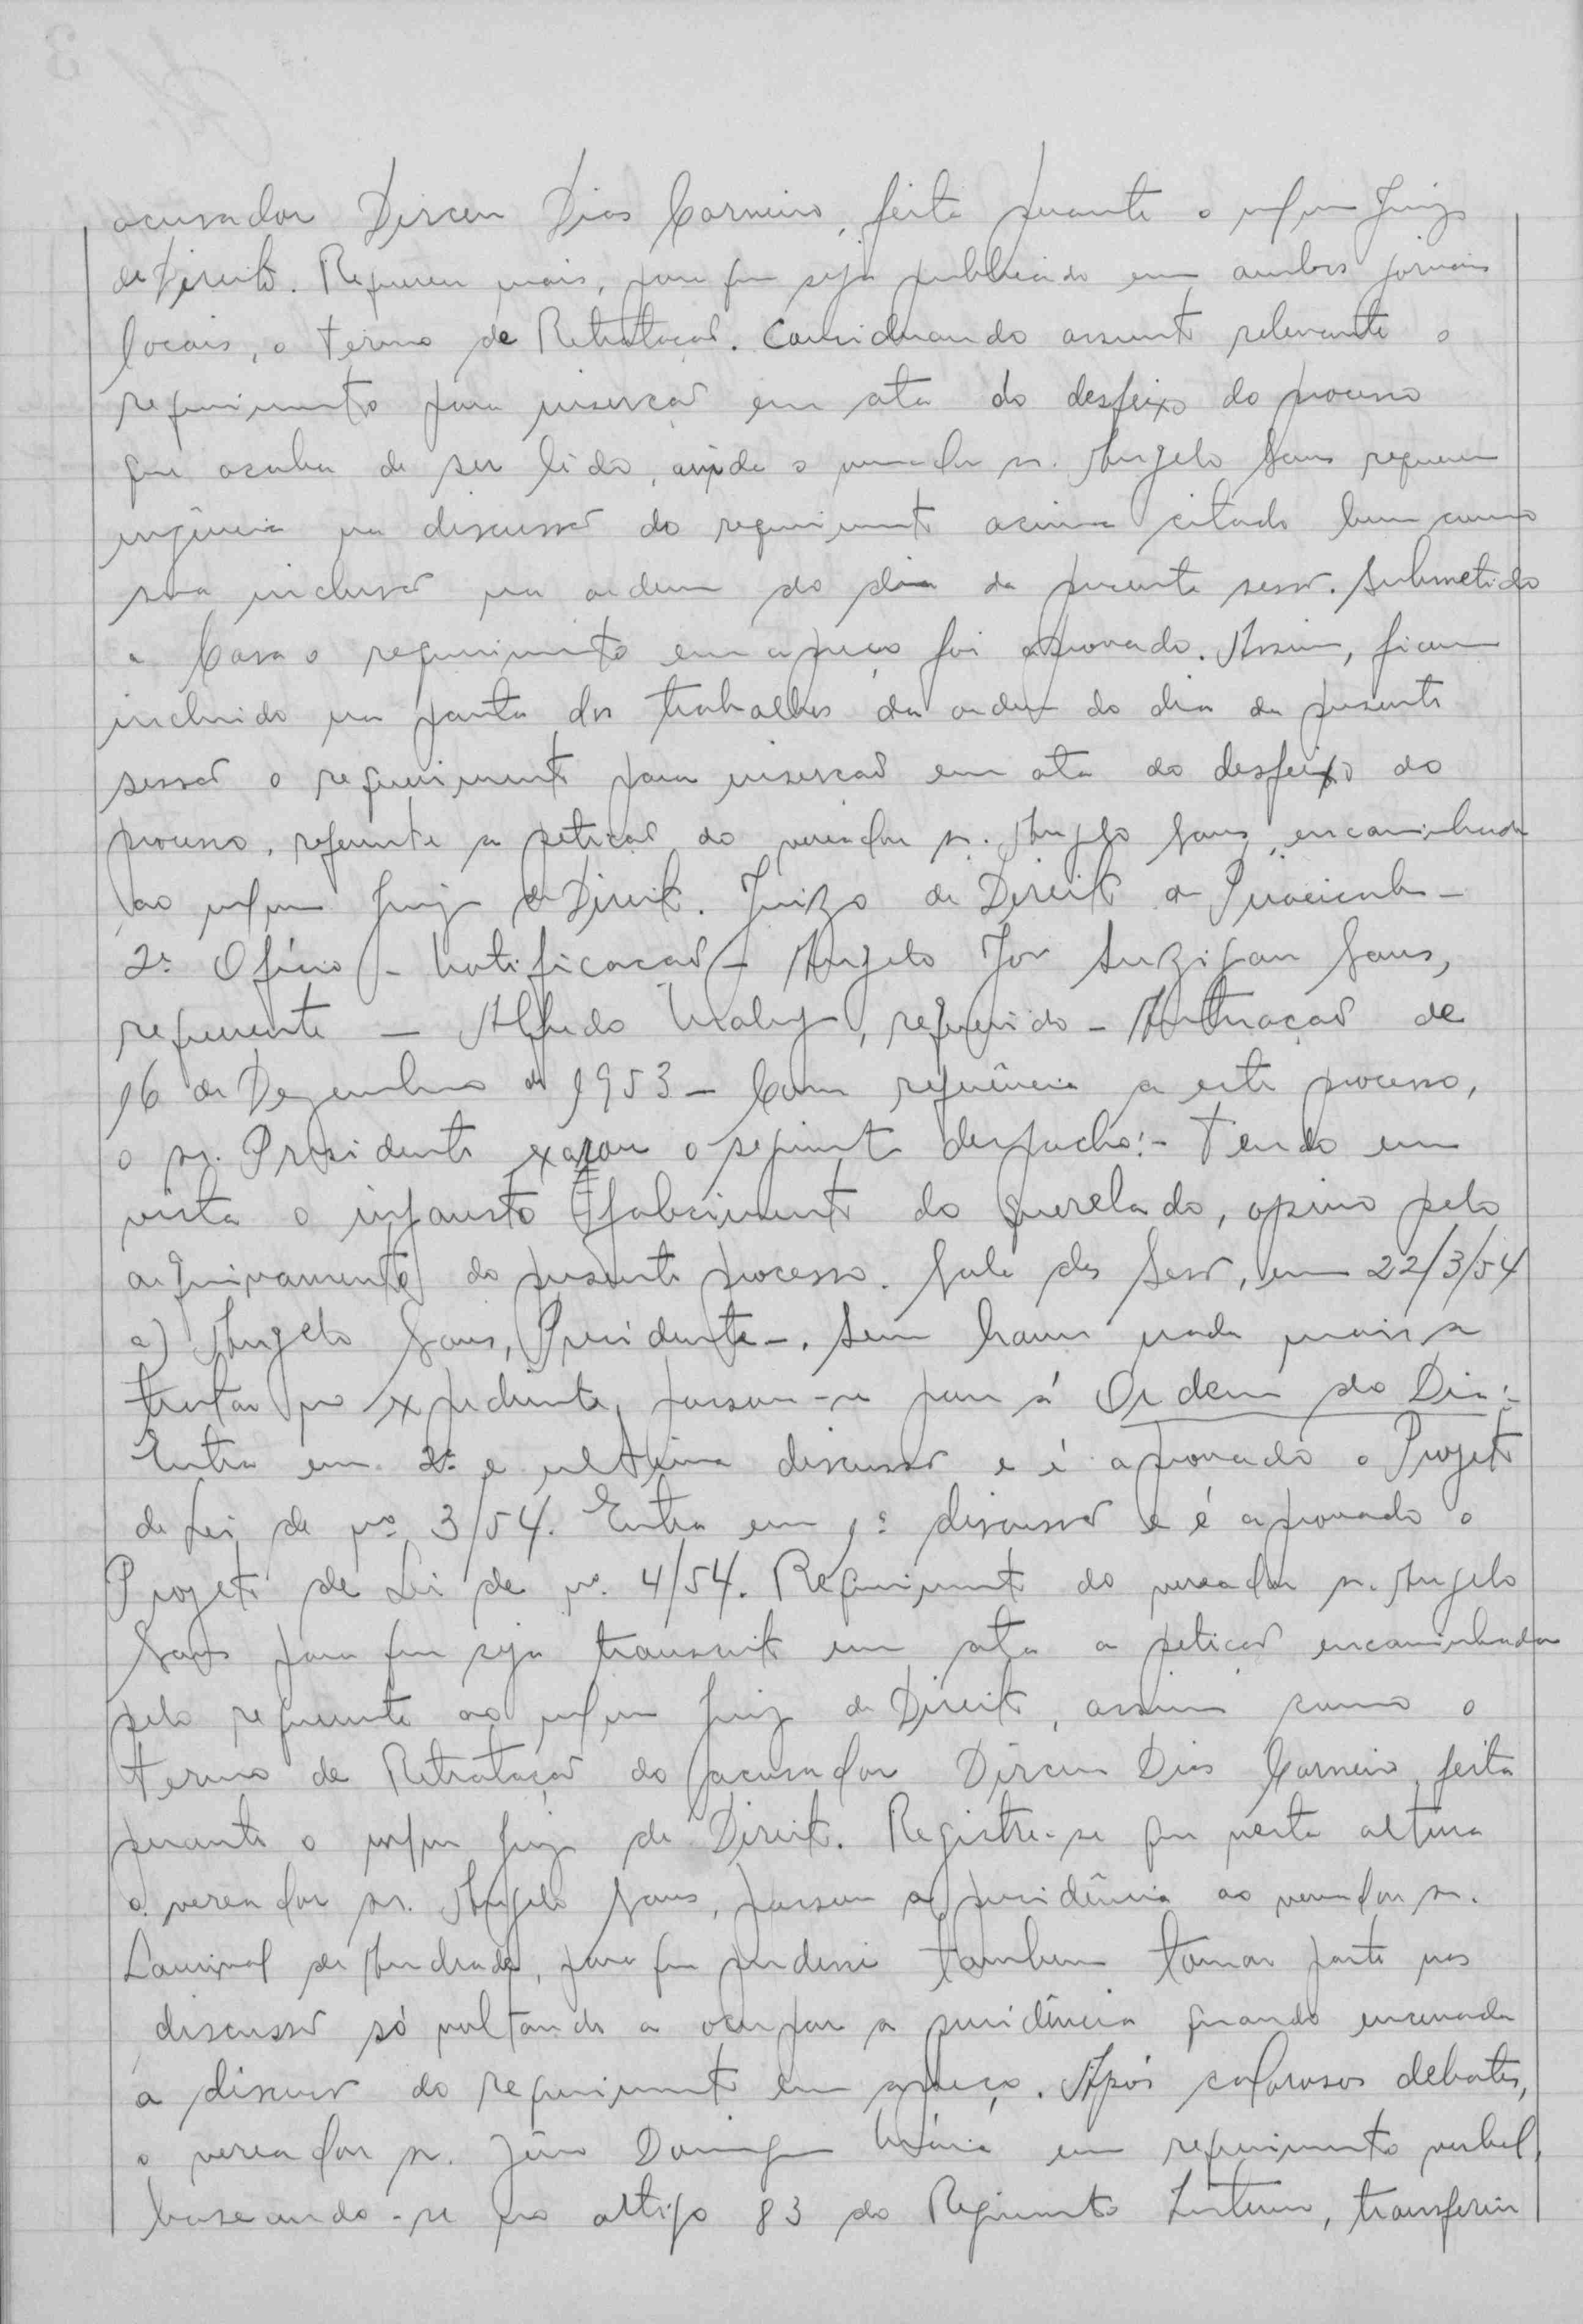 acusador Dirceu Dias Carneiro, feita perante o mesmo Juiz
de Direito. Requereu mais, para que seja publicado em ambos jornais
locais, o termo de Retratação. Considerando assunto relevante o
requerimento para inserção em ata do desfeixo do processo
que acaba de ser lido, ainda o vereador sr. Angelo Sans requereu
urgência na discussão do requerimento acima citado bem como
sua inclusão na ordem do dia da presente sessão. Submetido
a Casa o requerimento em apreço foi aprovado. Assim, ficou
incluido na pauta dos trabalhos da ordem do dia da presente
sessão o requerimento para inserção em ata do desfeixo do
processo, referente a petição do vereador sr. Angelo Sans, encaminhada
ao mesmo Juiz de Direito. Juizo de Direito de Piracicaba -
2º Ofício - Notificação - Angelo José Suzigan Sans,
requerente - Alfredo, requerido - Autuação de
16 de Dezembro de 1953 - Com referência a este processo,
o sr. Presidente exarou o seguinte despacho:- Tendo em
vista o infausto falecimento do querelado, opino pelo
arquivamento do presente processo. Sala das Sessões, em 22/3/54
a) Angelo Sans, Presidente -. Sem haver nada mais a
tratar no expediente, passou-se para á Ordem do Dia:-
Entra em 2ª e ultima discussão e é aprovado o Projeto
de Lei de nº 3/54. Entra em 1ª discussão e é aprovado o
Projeto de Lei de nº 4/54. Requerimento do vereador sr. Angelo
Sans para que seja transcrito em ata a petição encaminhada
pelo requerente ao mesmo Juiz de Direito, assim como o
termo de Retratação do acusador Dirceu Dias Carneiro, feita
perante o mesmo Juiz de Direito. Registre-se que nesta altura
o vereador sr. Angelo Sans, passou a presidência ao vereador sr.
Lourival de Andrade, para que pudesse tambem tomar parte nas
discussão só voltando a ocupar a presidência quando encerrada
a discussão do requerimento em apreço. Após calorosos debates,
o vereador sr. em requerimento verbal,
baseando-se no artigo 83 do Regimento Interno, transferiu